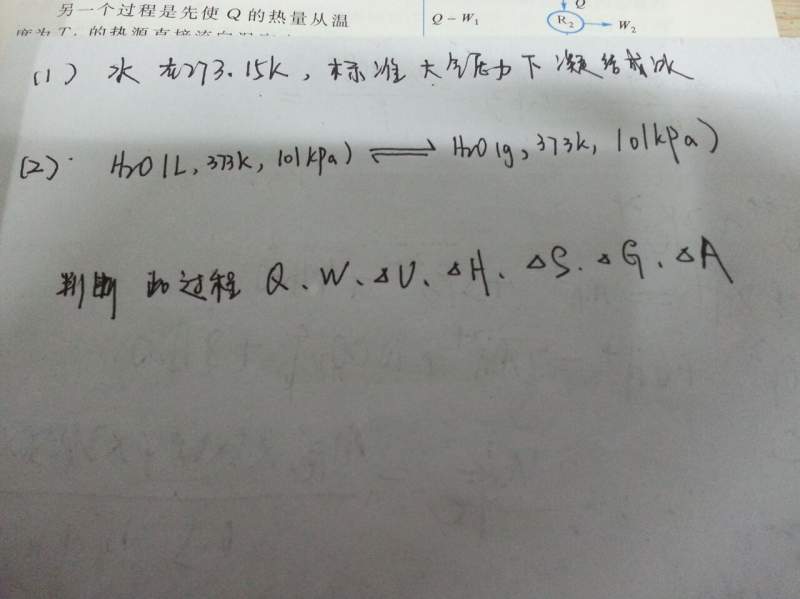 另一个过程是先使 Q 的热量从温
Q
Q − W₁
R₂
W₂
度为 T₁ 的热源直接流向
(1) 水在273.15K,标准大气压力下凝结成冰
(2). H₂O(L,373K,101kPa) ⇌ H₂O(g,373K,101kPa)
判断此过程 Q、W、△U、△H、△S、△G、△A